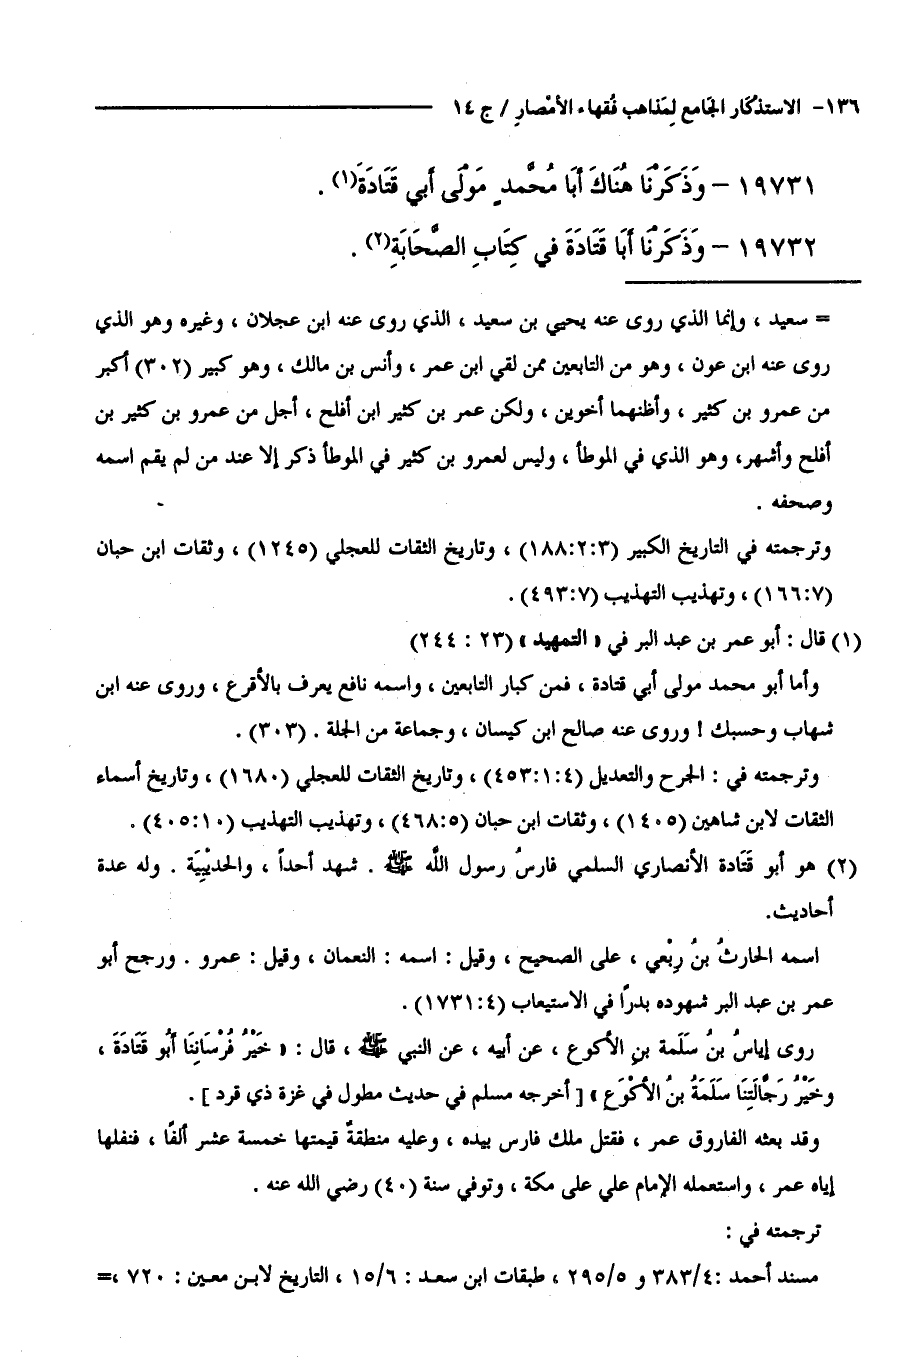 ١٣٦- الاستذكار الجامع لمَذاهب فُقهاء الأمْصار / ج ١٤
١٩٧٣١ - وَذَكَرْنَا هُنَاكَ أَبَا مُحَّمد مَوْلَى أَبي قَتَادَةَ(١) .
١٩٧٣٢ - وَذَكَرْنَا أَبَا قَتَادَةَ في كِتَابِ الصَّحَابَةِ(٢) .
= سعيد ، وإنما الذي روى عنه يحيي بن سعيد ، الذي روى عنه ابن عجلان ، وغيره وهو الذي
روى عنه ابن عون ، وهو من التابعين ممن لقي ابن عمر ، وأنس بن مالك ، وهو كبير (٣٠٢) أكبر
من عمرو بن كثير ، وأظنهما أخوين ، ولكن عمر بن كثير ابن أفلح ، أجل من عمرو بن كثير بن
أفلح وأشهر، وهو الذي في الموطأ ، وليس لعمرو بن كثير في الموطأ ذكر إلا عند من لم يقم اسمه
وصحفه .
وترجمته في التاريخ الكبير (١٨٨:٢:٣) ، وتاريخ الثقات للعجلي (١٢٤٥) ، وثقات ابن حبان
(١٦٦:٧) ، وتهذيب التهذيب (٤٩٣:٧) .
(١) قال : أبو عمر بن عبد البر في « التمهيد » (٢٣ : ٢٤٤)
وأما أبو محمد مولى أبي قتادة ، فمن كبار التابعين ، واسمه نافع يعرف بالأقرع ، وروى عنه ابن
شهاب وحسبك ! وروى عنه صالح ابن كيسان ، وجماعة من الجلة . (٣٠٣) .
وترجمته في : الجرح والتعديل (٤٥٣:١:٤) ، وتاريخ الثقات للعجلي (١٦٨٠) ، وتاريخ أسماء
الثقات لابن شاهين (١٤٠٥) ، وثقات ابن حبان (٤٦٨:٥) ، وتهذيب التهذيب (٤٠٥:١٠) .
(٢) هو أبو قَتَادة الأنصاري السلمي فارسُ رسول اللَّه ﷺ . شهد أحداً ، والحديْبِيَة . وله عدة
أحاديث.
اسمه الحارثُ بنُ رِبْعي ، على الصحيح ، وقيل : اسمه : النعمان ، وقيل : عمرو . ورجح أبو
عمر بن عبد البر شهوده بدراً في الاستيعاب (١٧٣١:٤) .
روى إياسُ بنُ سَلَمة بنِ الأكوع ، عن أبيه ، عن النبي ﷺ ، قال : « خَيْرُ فُرْسَاننَا أَبُو قَتَادَةَ ،
وخَيْرُ رَجَّالَتِنَا سَلَمَةُ بنُ الأَكْوَعِ » [ أخرجه مسلم في حديث مطول في غزة ذي قرد ] .
وقد بعثه الفاروق عمر ، فقتل ملك فارس بيده ، وعليه منطقةٌ قيمتها خمسة عشر ألفًا ، فنفلها
إياه عمر ، واستعمله الإمام علي على مكة ، وتوفي سنة (٤٠) رضي الله عنه .
ترجمته في :
مسند أحمد :٣٨٣/٤ و ٢٩٥/٥ ، طبقات ابن سعد : ١٥/٦ ، التاريخ لابن معين : ٧٢٠ ،=